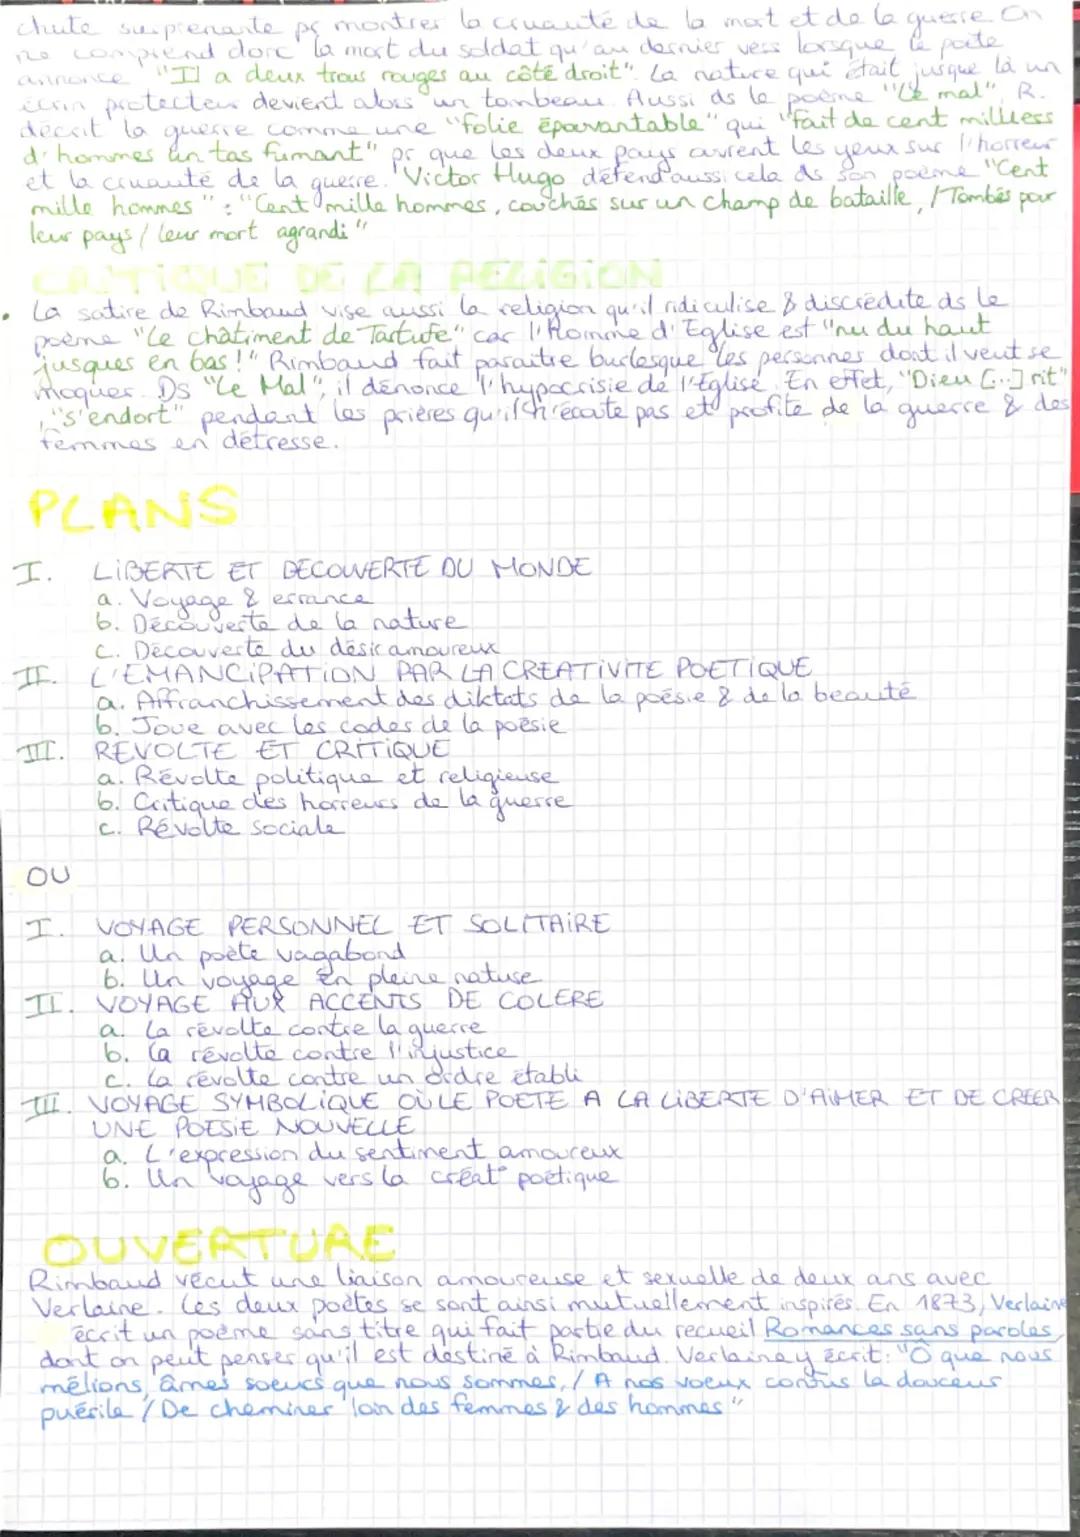 chute surprenante pr montrer la cruauté de la mort et de la guerre. On
ne comprend donc la mort du soldat qu'au dernier vers lorsque le poète
annonce "Il a deux trous rouges au côté droit". La nature qui était jusque là un
écrin protecteur devient alors un tombeau. Aussi ds le poème "Le mal", R.
décrit la guerre comme une "folie épouvantable" qui "fait de cent milliers
d'hommes un tas fumant" pr que les deux pays ouvrent les yeux sur l'horreur
et la cruauté de la guerre. Victor Hugo défend aussi cela ds son poème "Cent
mille hommes" : "Cent mille hommes, couchés sur un champ de bataille, / Tombés pour
leur pays / leur mort agrandi"
CRITIQUE DE LA RELIGION
• La satire de Rimbaud vise aussi la religion qu'il ridiculise & discrédite ds le
poème "Le châtiment de Tartufe" car l'Homme d'Eglise est "nu du haut
jusques en bas !" Rimbaud fait paraitre burlesque les personnes dont il veut se
moquer. Ds "Le Mal", il dénonce l'hypocrisie de l'Église. En effet, "Dieu [...] rit"
, "s'endort" pendant les prières qu'il n'écoute pas et profite de la guerre & des
femmes en détresse.
PLANS
I. LIBERTE ET DECOUVERTE DU MONDE
a. Voyage & errance
b. Découverte de la nature
c. Découverte du désir amoureux
II. L'EMANCIPATION PAR LA CREATIVITE POETIQUE
a. Affranchissement des diktats de la poésie & de la beauté
b. Joue avec les codes de la poésie
III. REVOLTE ET CRITIQUE
a. Révolte politique et religieuse
b. Critique des horreurs de la guerre
c. Révolte sociale
OU
I. VOYAGE PERSONNEL ET SOLITAIRE
a. Un poète vagabond
b. Un voyage en pleine nature
II. VOYAGE AUX ACCENTS DE COLERE
a. La révolte contre la guerre
b. La révolte contre l'injustice
c. La révolte contre un ordre établi
III. VOYAGE SYMBOLIQUE OÙ LE POETE A LA LIBERTE D'AIMER ET DE CREER
UNE POESIE NOUVELLE
a. L'expression du sentiment amoureux
b. Un voyage vers la créat° poétique
OUVERTURE
Rimbaud vécut une liaison amoureuse et sexuelle de deux ans avec
Verlaine. Les deux poètes se sont ainsi mutuellement inspirés. En 1873, Verlaine
écrit un poème sans titre qui fait partie du recueil Romances sans paroles
dont on peut penser qu'il est destiné à Rimbaud. Verlaine y écrit : "Ô que nous
mêlions, âmes soeurs que nous sommes, / A nos voeux confus la douceur
puérile / De cheminer loin des femmes & des hommes"